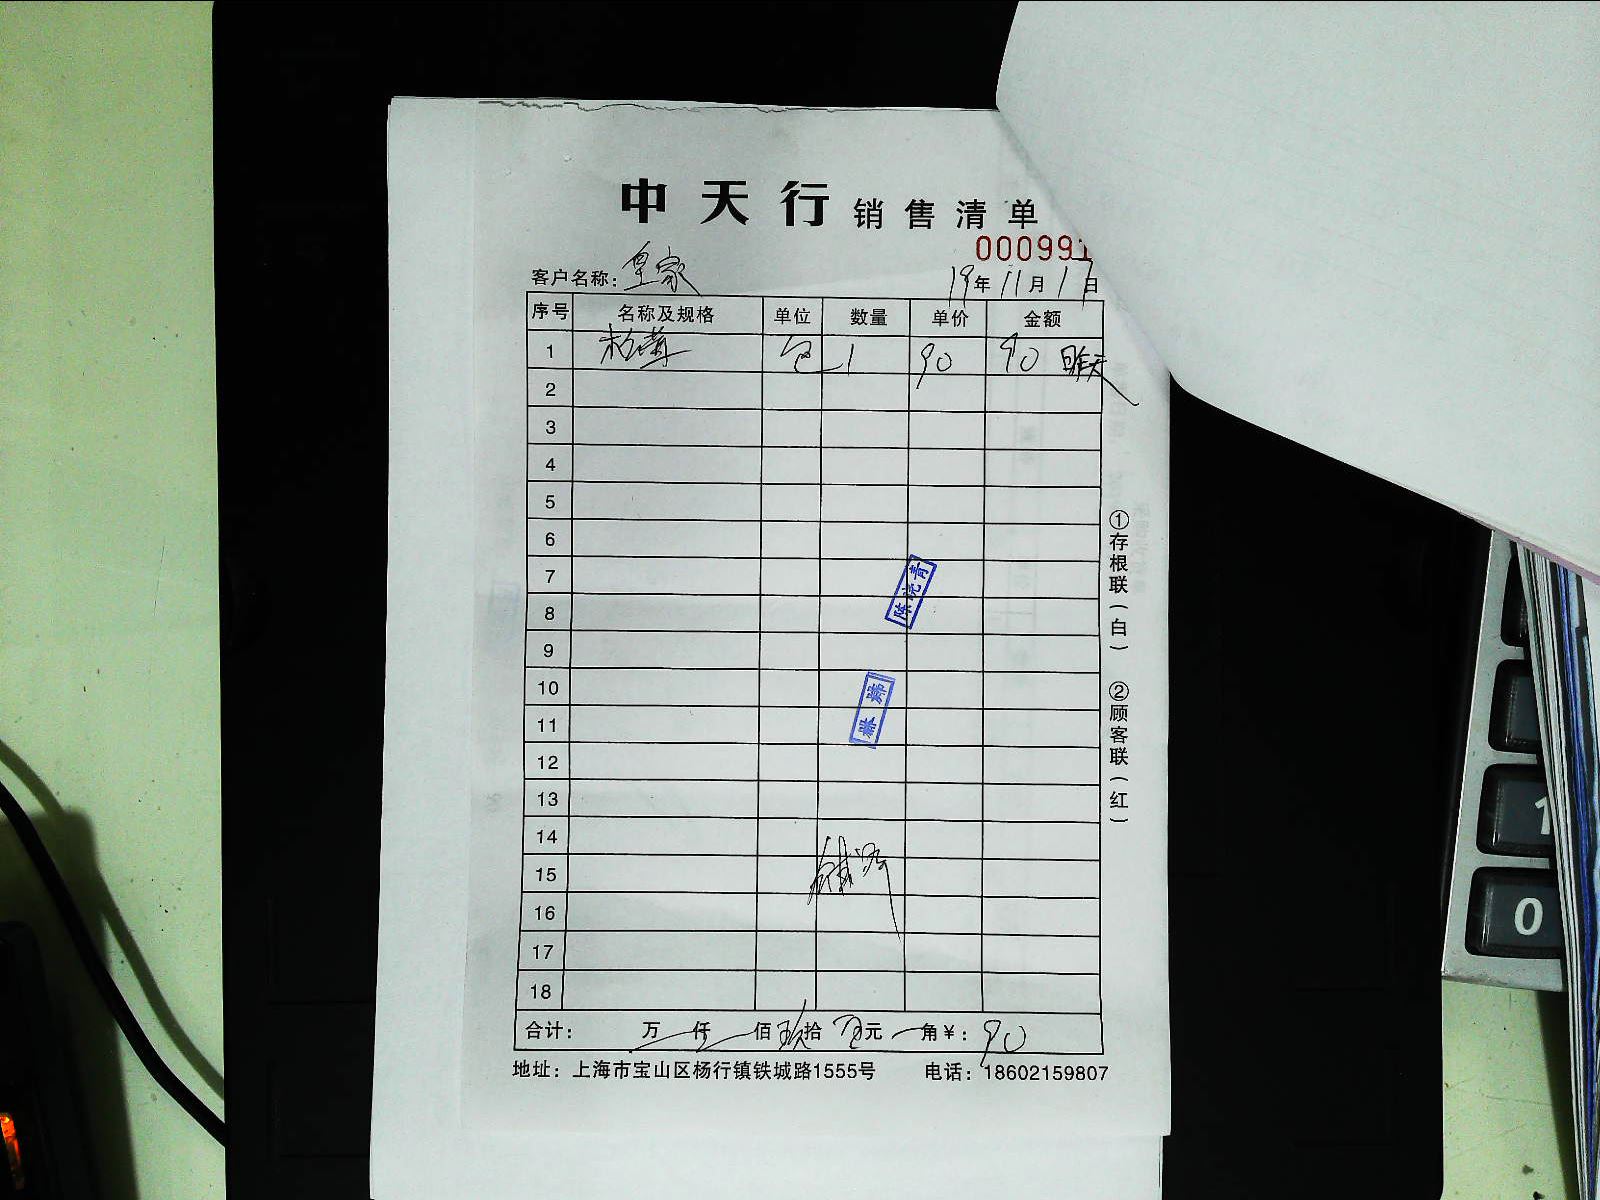 中天行 销售清单
000991
客户名称：皇家 19年11月17日
序号 名称及规格 单位 数量 单价 金额
1 松茸 包 1 90 90 昨天
2
3
4
5
6
7
8
9
10
11
12
13
14
15
16
17
18
陈说青
合计： 万 仟 佰 玖拾 元 角￥：90
地址：上海市宝山区杨行镇铁城路1555号 电话：18602159807
①存根联（白） ②顾客联（红）
1
0